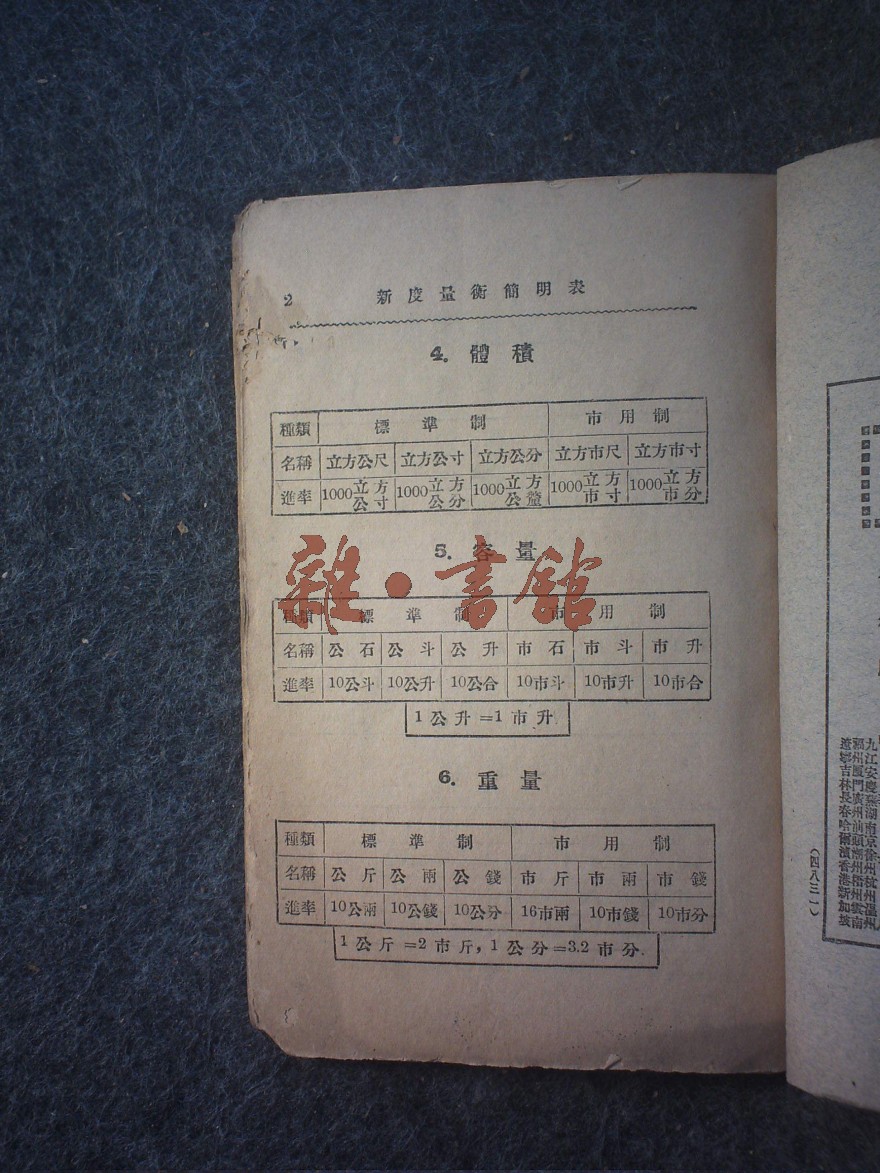 2 新度量衡簡明表
4. 體積
種類 標準制 市用制
名稱 立方公尺 立方公寸 立方公分 立方市尺 立方市寸
進率 1000立方公寸 1000立方公分 1000立方公釐 1000立方市寸 1000立方市分
5. 容量
雜·書館
種類 標準制 市用制
名稱 公石 公斗 公升 市石 市斗 市升
進率 10公斗 10公升 10公合 10市斗 10市升 10市合
1公升=1市升
6. 重量
種類 標準制 市用制
名稱 公斤 公兩 公錢 市斤 市兩 市錢
進率 10公兩 10公錢 10公分 16市兩 10市錢 10市分
1公斤=2市斤,1公分=3.2市分.
(四八三一)